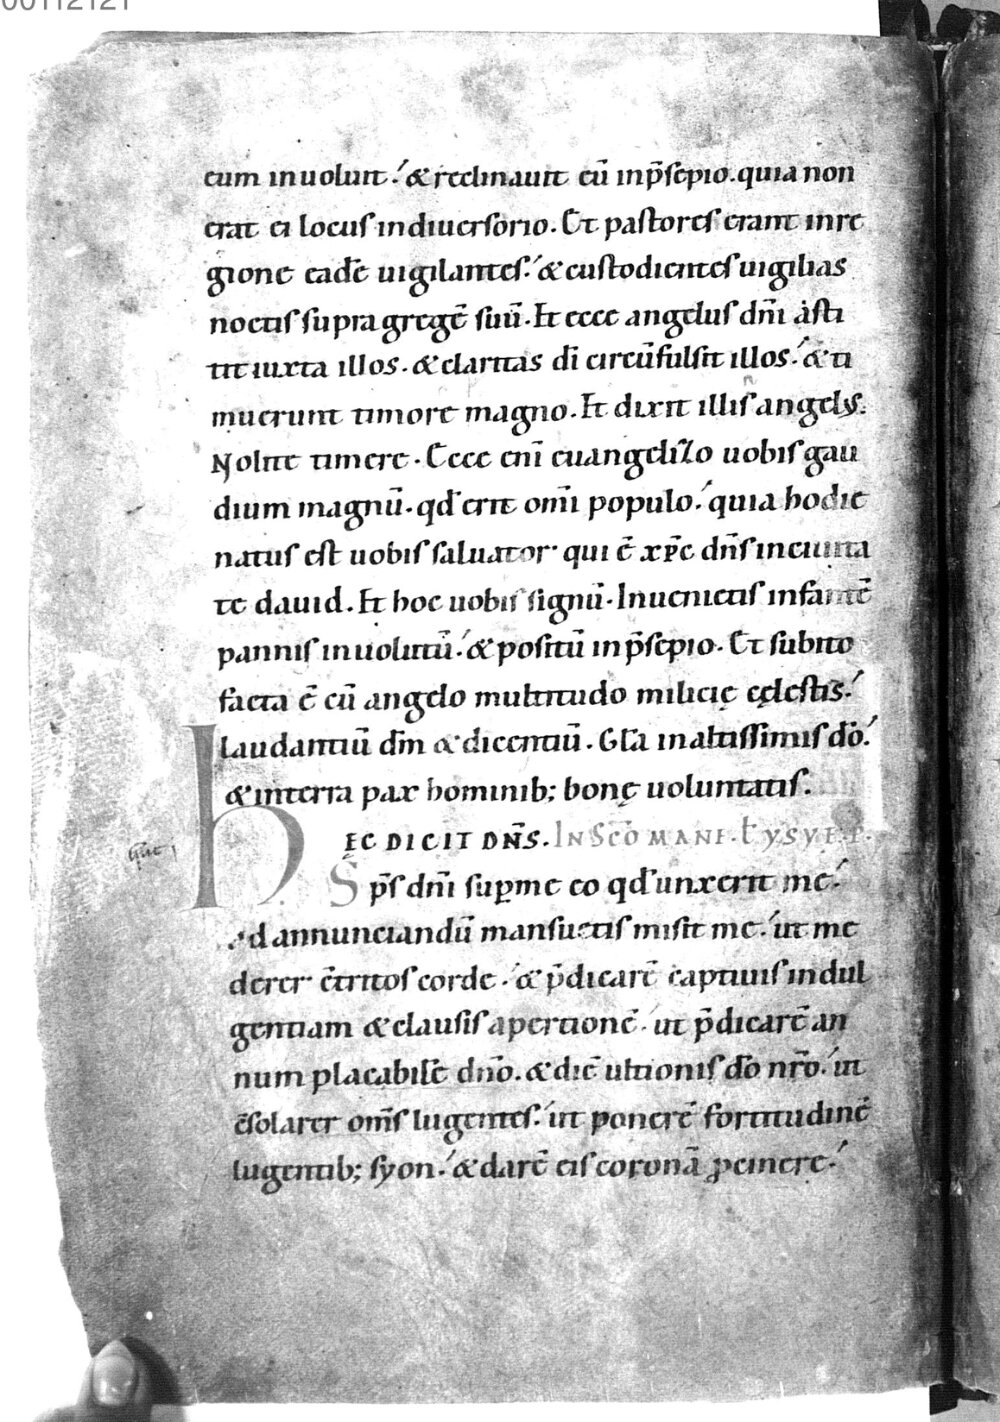 00112121
cum inuoluit. & reclinauit eū inp̄sepio. quia non
erat ei locus indiuersorio. Et pastores erant inre
gione eadē uigilantes. & custodientes uigilias
noctis supra gregē suū. Et ecce angelus dn̄i asti
tit iuxta illos. & claritas dī circūfulsit illos. & ti
muerunt timore magno. Et dixit illis angelus.
Nolite timere. Ecce eni̅ euangelizo uobis gau
dium magnū. qd̄ erit om̄i populo. quia hodie
natus est uobis saluator qui ē xp̄c dn̄s inciuita
te dauid. Et hoc uobis signū. Inuenietis infantē
pannis inuolutū. & positū inp̄sepio. Et subito
facta ē cū angelo multitudo milicię cęlestis.
laudantiū dm̄ & dicentiū. Gl̄a inaltissimis dō.
& interra pax hominib; bonę uoluntatis.
HEC DICIT DN̄S. IN SC̄O MANE. L̄ YSYE. P.
Sp̄s dn̄i sup̱ me eo qd̄ unxerit me.
Ad annunciandū mansuetis misit me. ut me
derer c̄tritos corde. & p̄dicarē captiuis indul
gentiam & clausis apertionē. ut p̄dicarē an
num placabilē dn̄o. & diē ultionis dō nr̄o. ut
c̄solarer om̄s lugentes. ut ponerē fortitudinē
lugentib; syon. & darē eis coronā p̱ cinere.